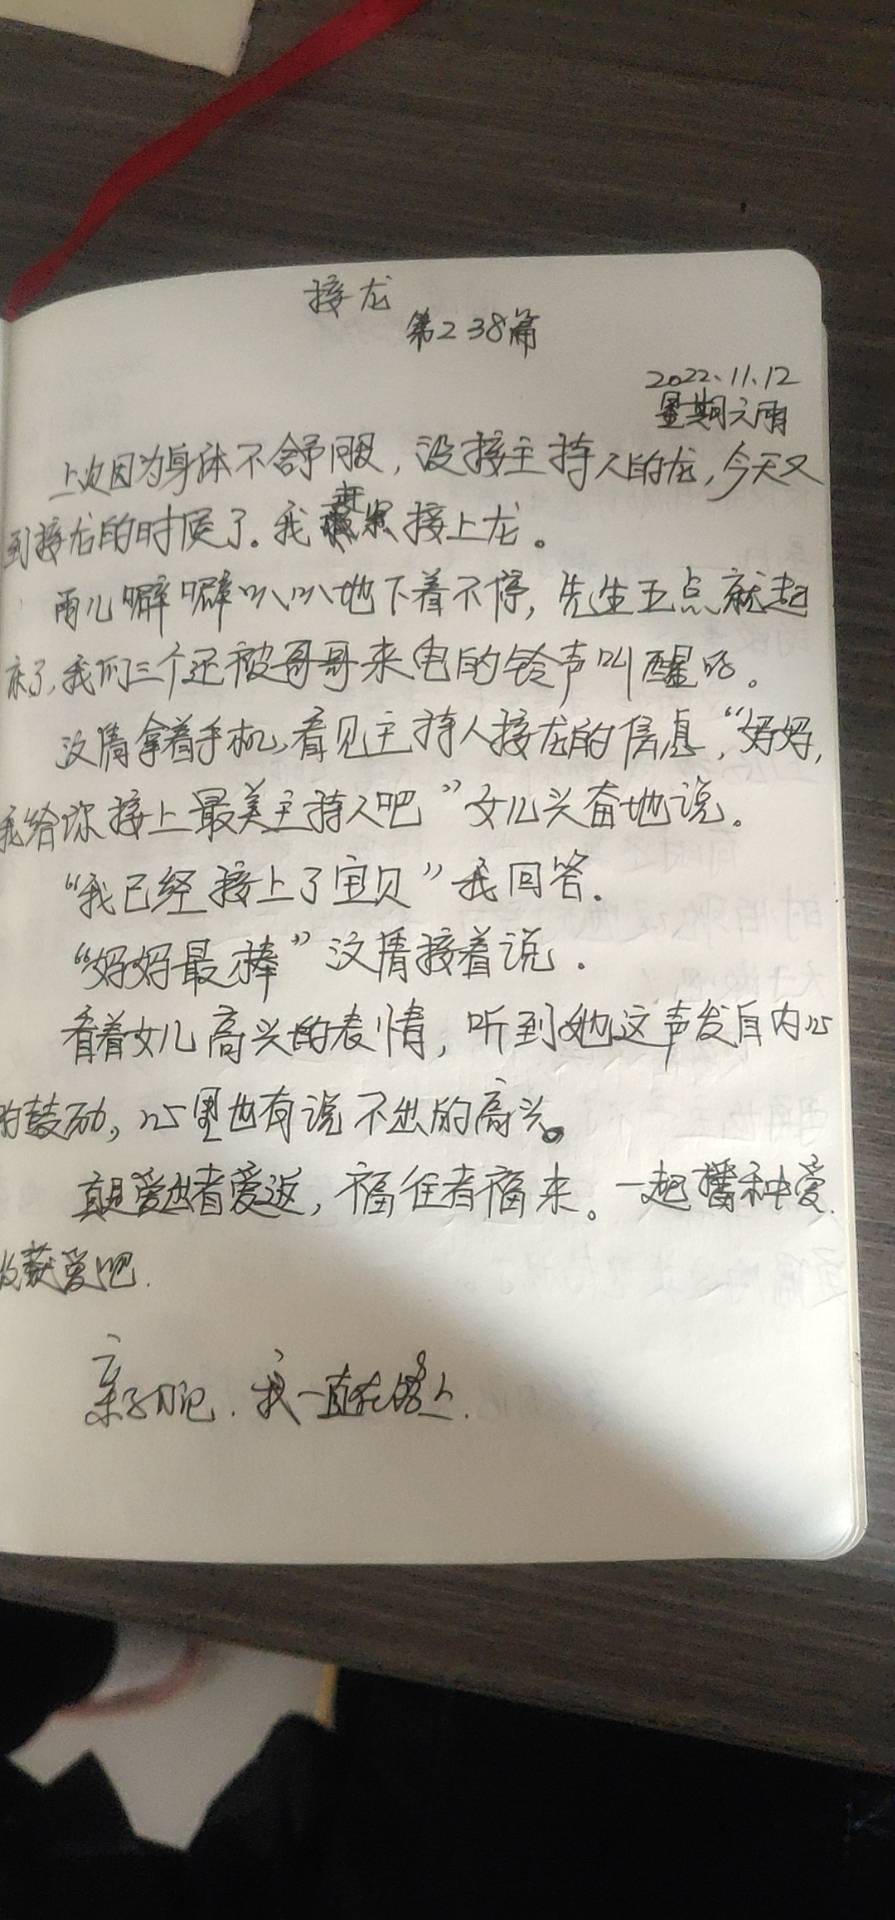 接龙
第238篇
2022.11.12
星期六雨
上次因为身体不舒服，没接主持人的龙，今天又
到接龙的时候了。我赶紧接上龙。
雨儿噼噼叭叭地下着不停，先生五点就起
床了，我们三个还被哥哥来电的铃声叫醒的。
汶倩拿着手机，看见主持人接龙的信息，“妈妈，
我给你接上最美主持人吧”女儿兴奋地说。
“我已经接上了宝贝”我回答.
“妈妈最棒”汶倩接着说.
看着女儿高兴的表情，听到她这声发自内心
的鼓励，心里也有说不出的高兴。
真是爱出者爱返，福往者福来。一起播种爱
收获爱吧.
亲子日记.我一直在路上.